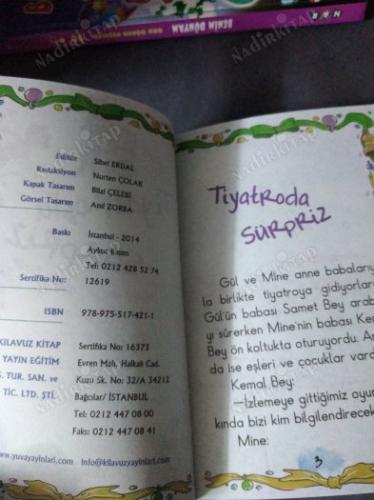 BENİM DÜNYAM
Editör Sibel ERDAL
Redaksiyon Nurten ÇOLAK
Kapak Tasarım Bilal ÇELEBİ
Görsel Tasarım Anıl ZORBA
Baskı İstanbul - 2014
Basım
Tel: 0212 428 52 74
Sertifika No: 12619
ISBN 978-975-517-421-1
KILAVUZ KİTAP Sertifika No: 16373
YAYIN EĞİTİM Evren Mah. Halkalı Cad.
S. TUR. SAN. ve Kuzu Sk. No: 32/A 34212
TİC. LTD. ŞTİ. Bağcılar/ İSTANBUL
Tel: 0212 447 08 00
Faks: 0212 447 08 41
www.yuvayayinlari.com info@kilavuzyayinlari.com
Tiyatroda
SÜRPRİZ
Gül ve Mine anne babaları
la birlikte tiyatroya gidiyorlar
Gül'ün babası Samet Bey arab
yı sürerken Mine'nin babası Ke
Bey ön koltukta oturuyordu. Ar
da ise eşleri ve çocuklar vard
Kemal Bey:
—İzlemeye gittiğimiz oyun
kında bizi kim bilgilendirecek
Mine:
3
NadirKitap